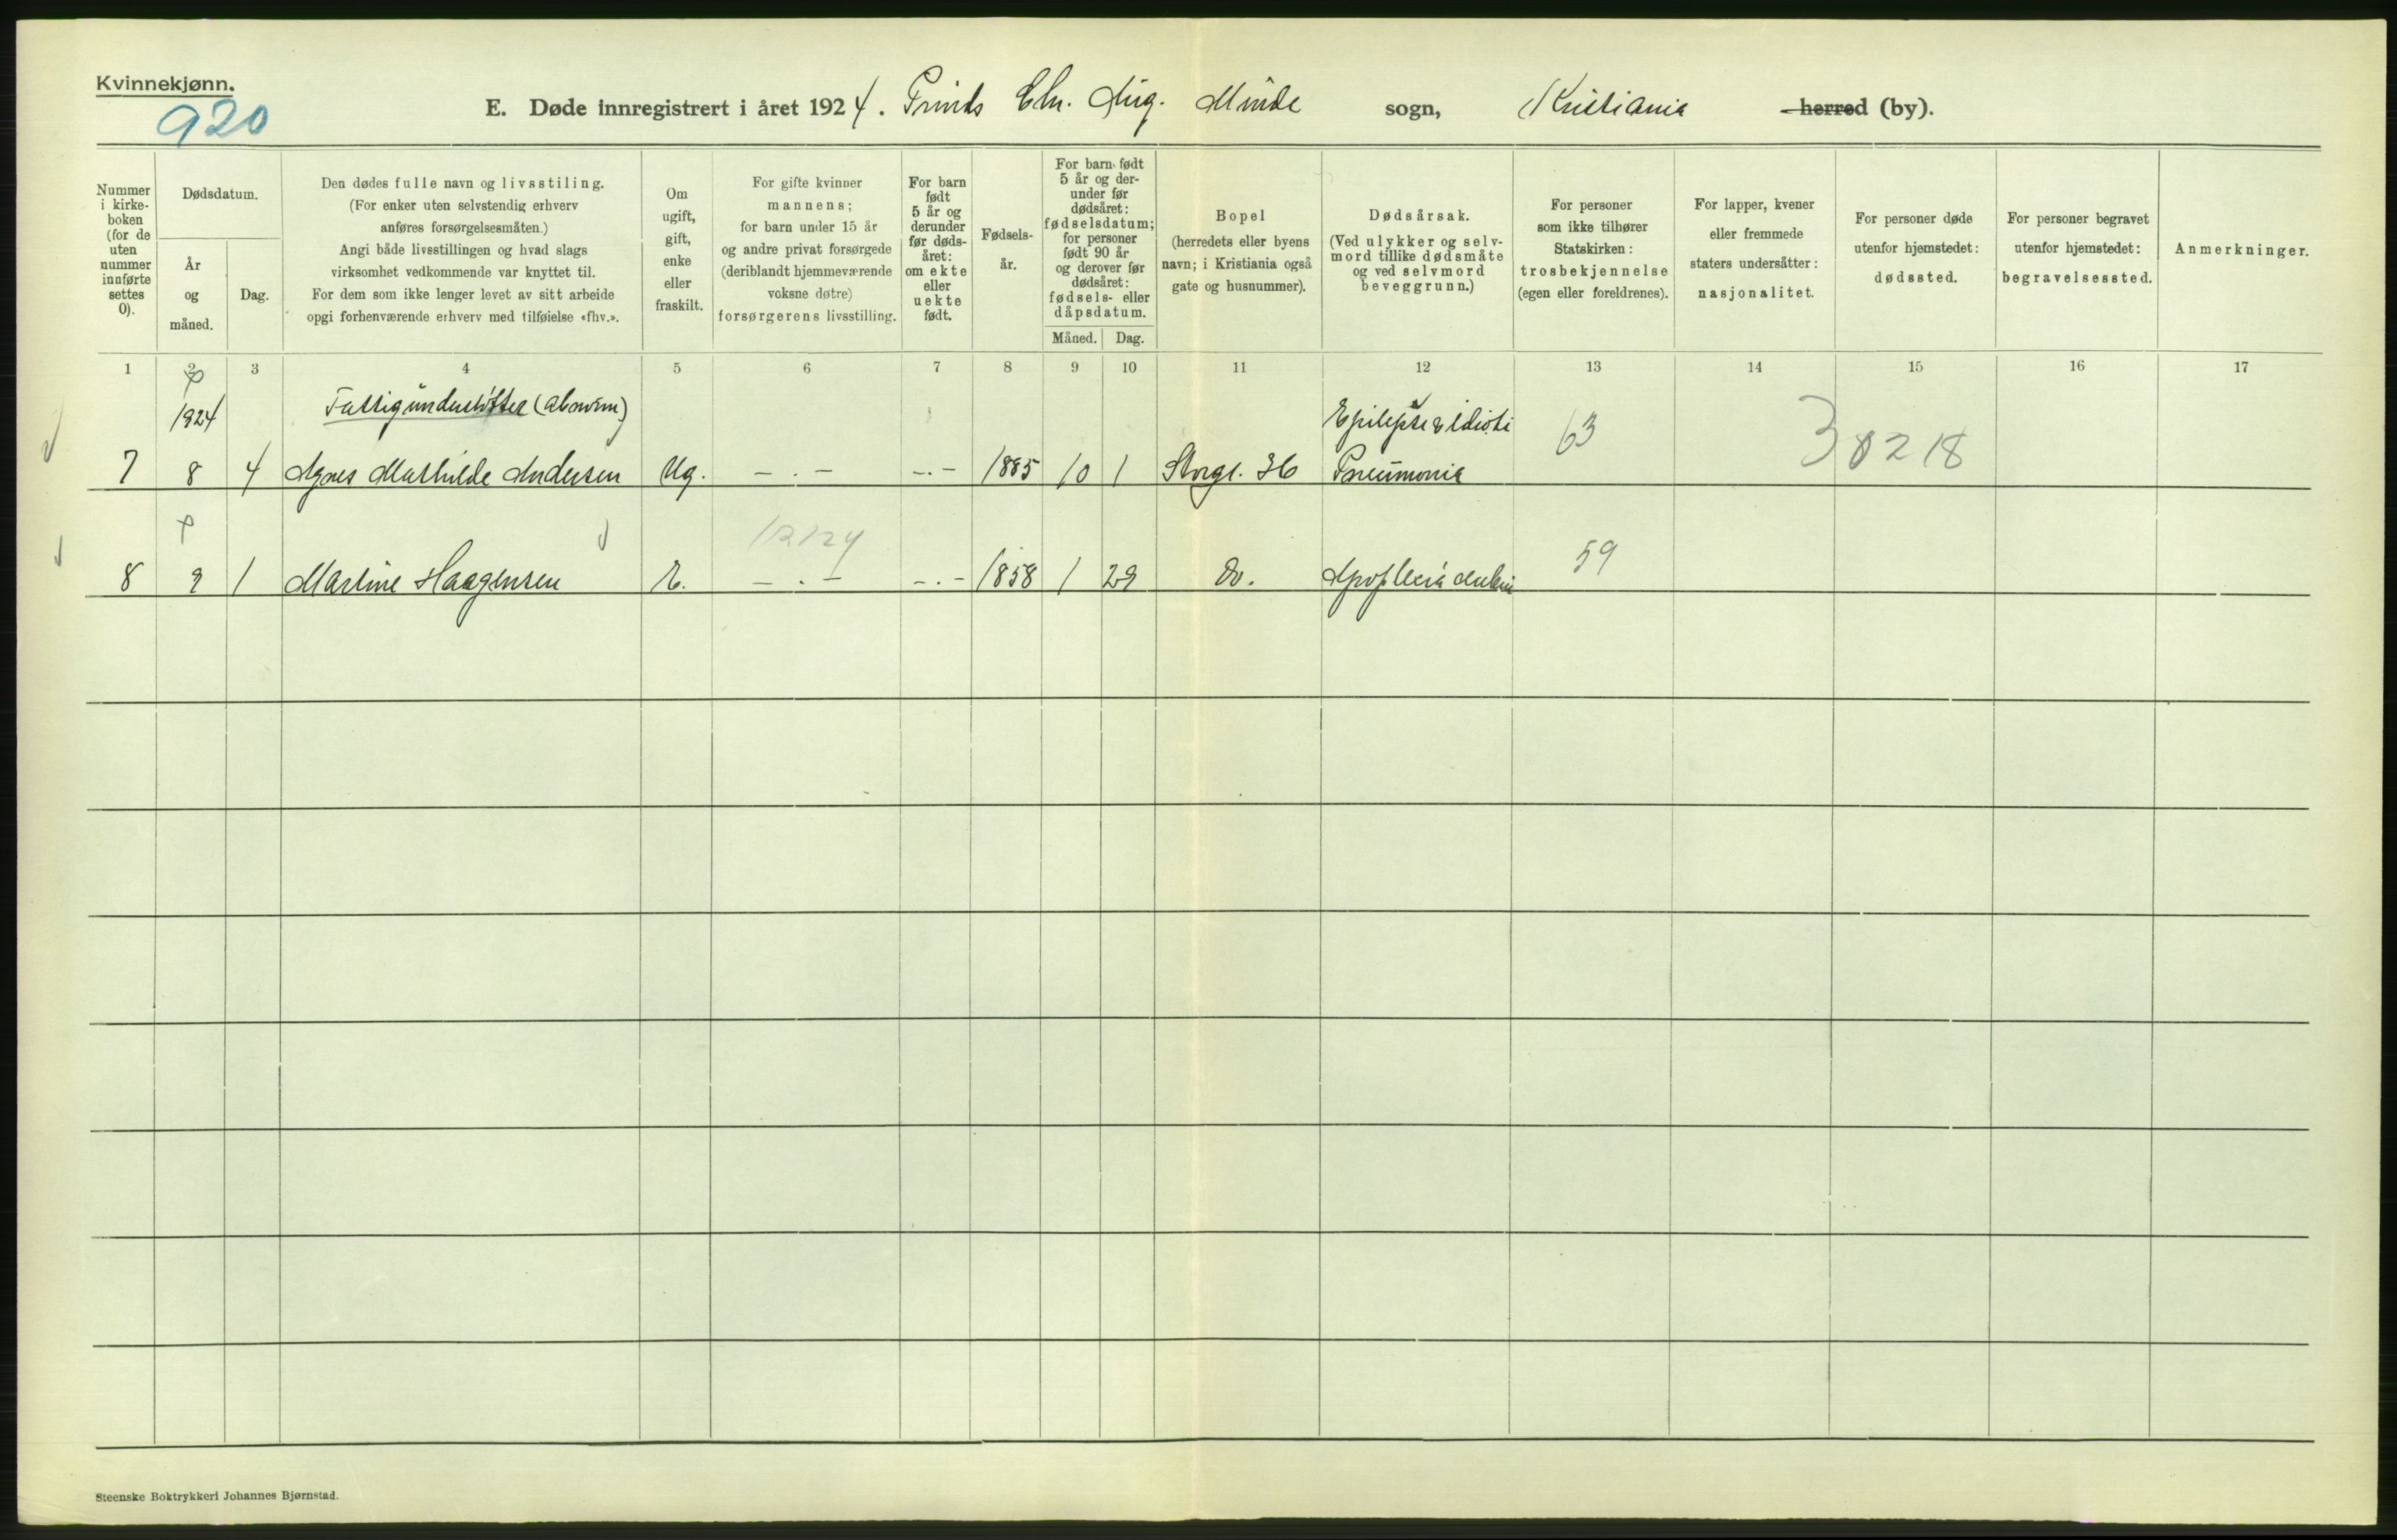 Kvinnekjønn.
920
E. Døde innregistrert i året 1924. Prinds Chr. Aug. Minde sogn, Kristiania herred (by).
Nummer i kirkeboken (for de uten nummer innførte settes 0).
Dødsdatum.
År og måned.
Dag.
Den dødes fulle navn og livsstiling.
(For enker uten selvstendig erhverv
anføres forsørgelsesmåten.)
Angi både livsstillingen og hvad slags
virksomhet vedkommende var knyttet til.
For dem som ikke lenger levet av sitt arbeide
opgi forhenværende erhverv med tilføielse «fhv.».
Om ugift, gift, enke eller fraskilt.
For gifte kvinner
mannens;
for barn under 15 år
og andre privat forsørgede
(deriblandt hjemmeværende
voksne døtre)
forsørgerens livsstilling.
For barn født 5 år og derunder før dødsåret: om ekte eller uekte født.
Fødselsår.
For barn født 5 år og derunder før dødsåret: fødselsdatum; for personer født 90 år og derover før dødsåret: fødsels- eller dåpsdatum.
Måned. Dag.
Bopel
(herredets eller byens
navn; i Kristiania også
gate og husnummer).
Dødsårsak.
(Ved ulykker og selvmord tillike dødsmåte og ved selvmord beveggrunn.)
For personer
som ikke tilhører
Statskirken:
trosbekjennelse
(egen eller foreldrenes).
For lapper, kvener
eller fremmede
staters undersåtter:
nasjonalitet.
For personer døde
utenfor hjemstedet:
dødssted.
For personer begravet
utenfor hjemstedet:
begravelsessted.
Anmerkninger.
1 2 3 4 5 6 7 8 9 10 11 12 13 14 15 16 17
1924 Fattigunderstøttet Epilepsi & Idioti 63 38218
7 8 4 Agnes Mathilde Andersen Ug. - . - - . - 1885 10 1 Storgt. 36 Pneumonia
12124 59
8 9 1 Martine Haagensen E. - . - - . - 1858 1 29 Do. Apoplexia
Steenske Boktrykkeri Johannes Bjørnstad.